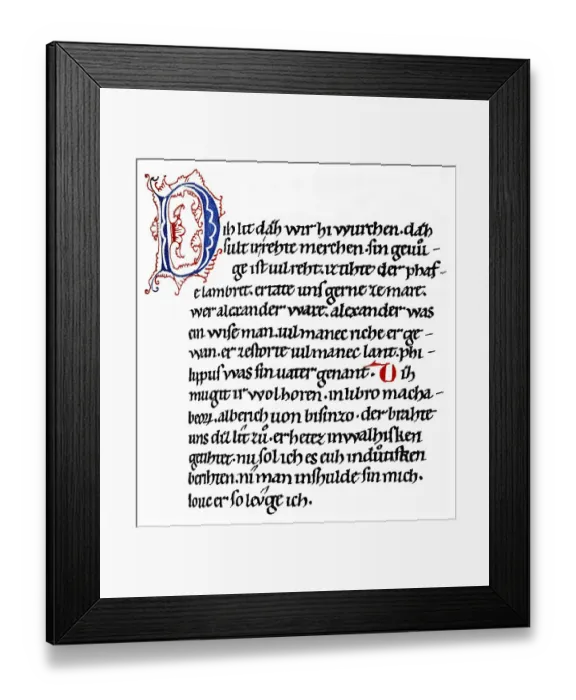 Dih lit dah wir hi wurchen. dah
sult ir rehte merchen. sin gevů-
ge ist uil reht. iz tihte der phaf-
e lambret. er tate uns gerne ze mare.
wer alexander ware. alexander was
ein wise man. uil manec riche er ge-
wan. er zestorte uil manec lant. phi-
lipus was sin uater genant. Dih
mugit ir wol horen. in libro macha-
alberich uon bisinzo. der brahte
uns lit zů. er hetez in walhisken
getihtet. nu sol ich es euh in důtisken
berihten. niman inshulde sin mich.
louc er so levge ich.